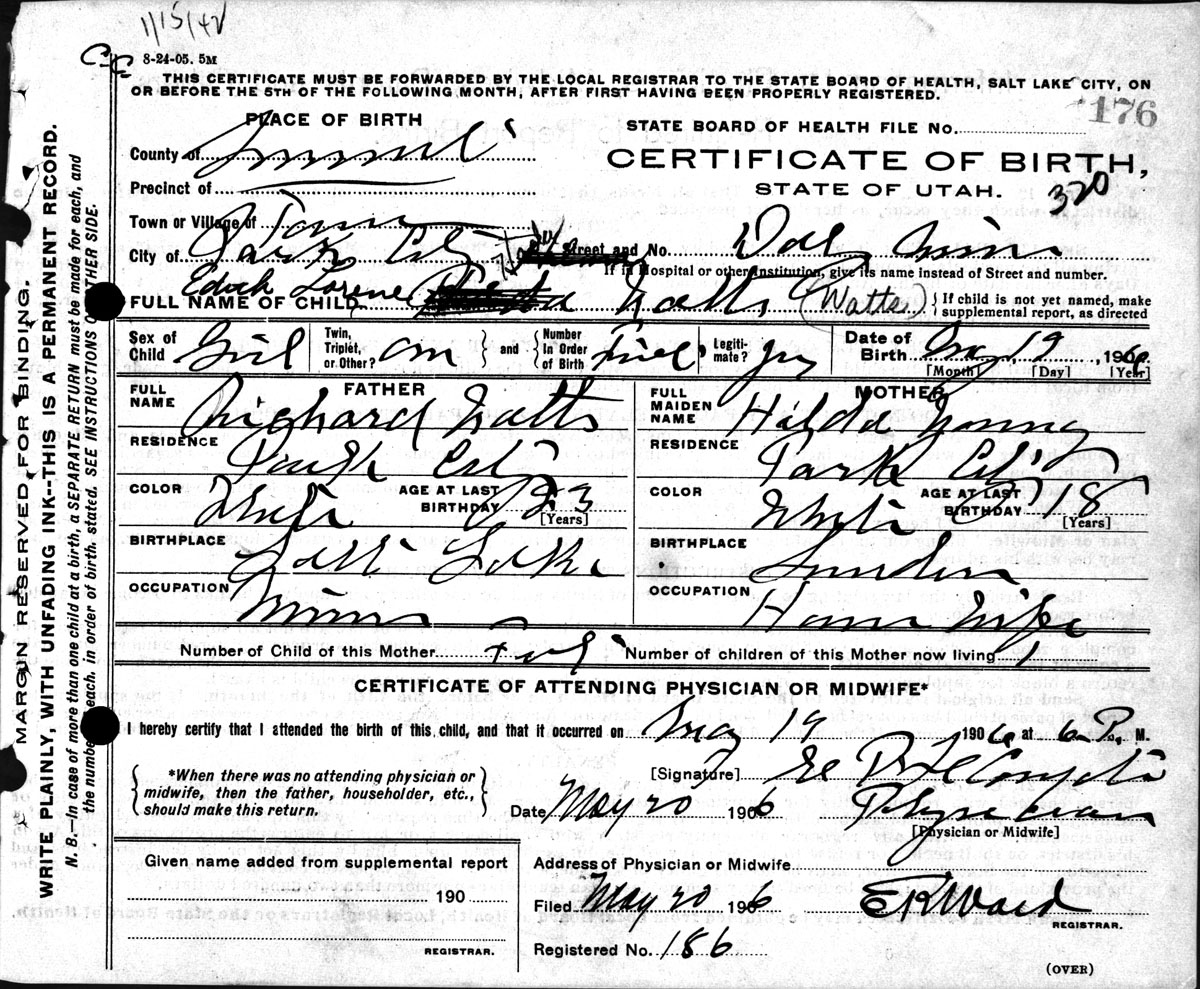 1/15/42
C-C 8-24-05. 5M
THIS CERTIFICATE MUST BE FORWARDED BY THE LOCAL REGISTRAR TO THE STATE BOARD OF HEALTH, SALT LAKE CITY, ON
OR BEFORE THE 5TH OF THE FOLLOWING MONTH, AFTER FIRST HAVING BEEN PROPERLY REGISTERED.
176
PLACE OF BIRTH
STATE BOARD OF HEALTH FILE No.
County of Summit
CERTIFICATE OF BIRTH,
Precinct of
STATE OF UTAH.
320
Town or Village of
City of Park City Street and No. Daly
If in Hospital or other Institution, give its name instead of Street and number.
FULL NAME OF CHILD Lorene Watts (Watts)
If child is not yet named, make
supplemental report, as directed
Sex of Child Girl Twin, Triplet, or Other? and Number In Order of Birth Legiti-mate? Date of Birth May 19 1906
[Month] [Day] [Year]
FATHER MOTHER
FULL NAME Richard Watts FULL MAIDEN NAME Hilda Young
RESIDENCE Park City RESIDENCE Park City
COLOR White AGE AT LAST BIRTHDAY 23 [Years] COLOR White AGE AT LAST BIRTHDAY 18 [Years]
BIRTHPLACE Salt Lake BIRTHPLACE
OCCUPATION Miner OCCUPATION House Wife
Number of Child of this Mother Number of children of this Mother now living 1
CERTIFICATE OF ATTENDING PHYSICIAN OR MIDWIFE*
I hereby certify that I attended the birth of this child, and that it occurred on May 19 1906 at 6 P. M.
*When there was no attending physician or
midwife, then the father, householder, etc.,
should make this return.
[Signature] E P
Date May 20 1906 Physician
[Physician or Midwife]
Given name added from supplemental report
190
REGISTRAR.
Address of Physician or Midwife
Filed May 20 1906 E R Ward
REGISTRAR.
Registered No. 186
(OVER)
MARGIN RESERVED FOR BINDING.
WRITE PLAINLY, WITH UNFADING INK--THIS IS A PERMANENT RECORD.
N. B.—In case of more than one child at a birth, a SEPARATE RETURN must be made for each, and
the number of each, in order of birth, stated. SEE INSTRUCTIONS ON OTHER SIDE.